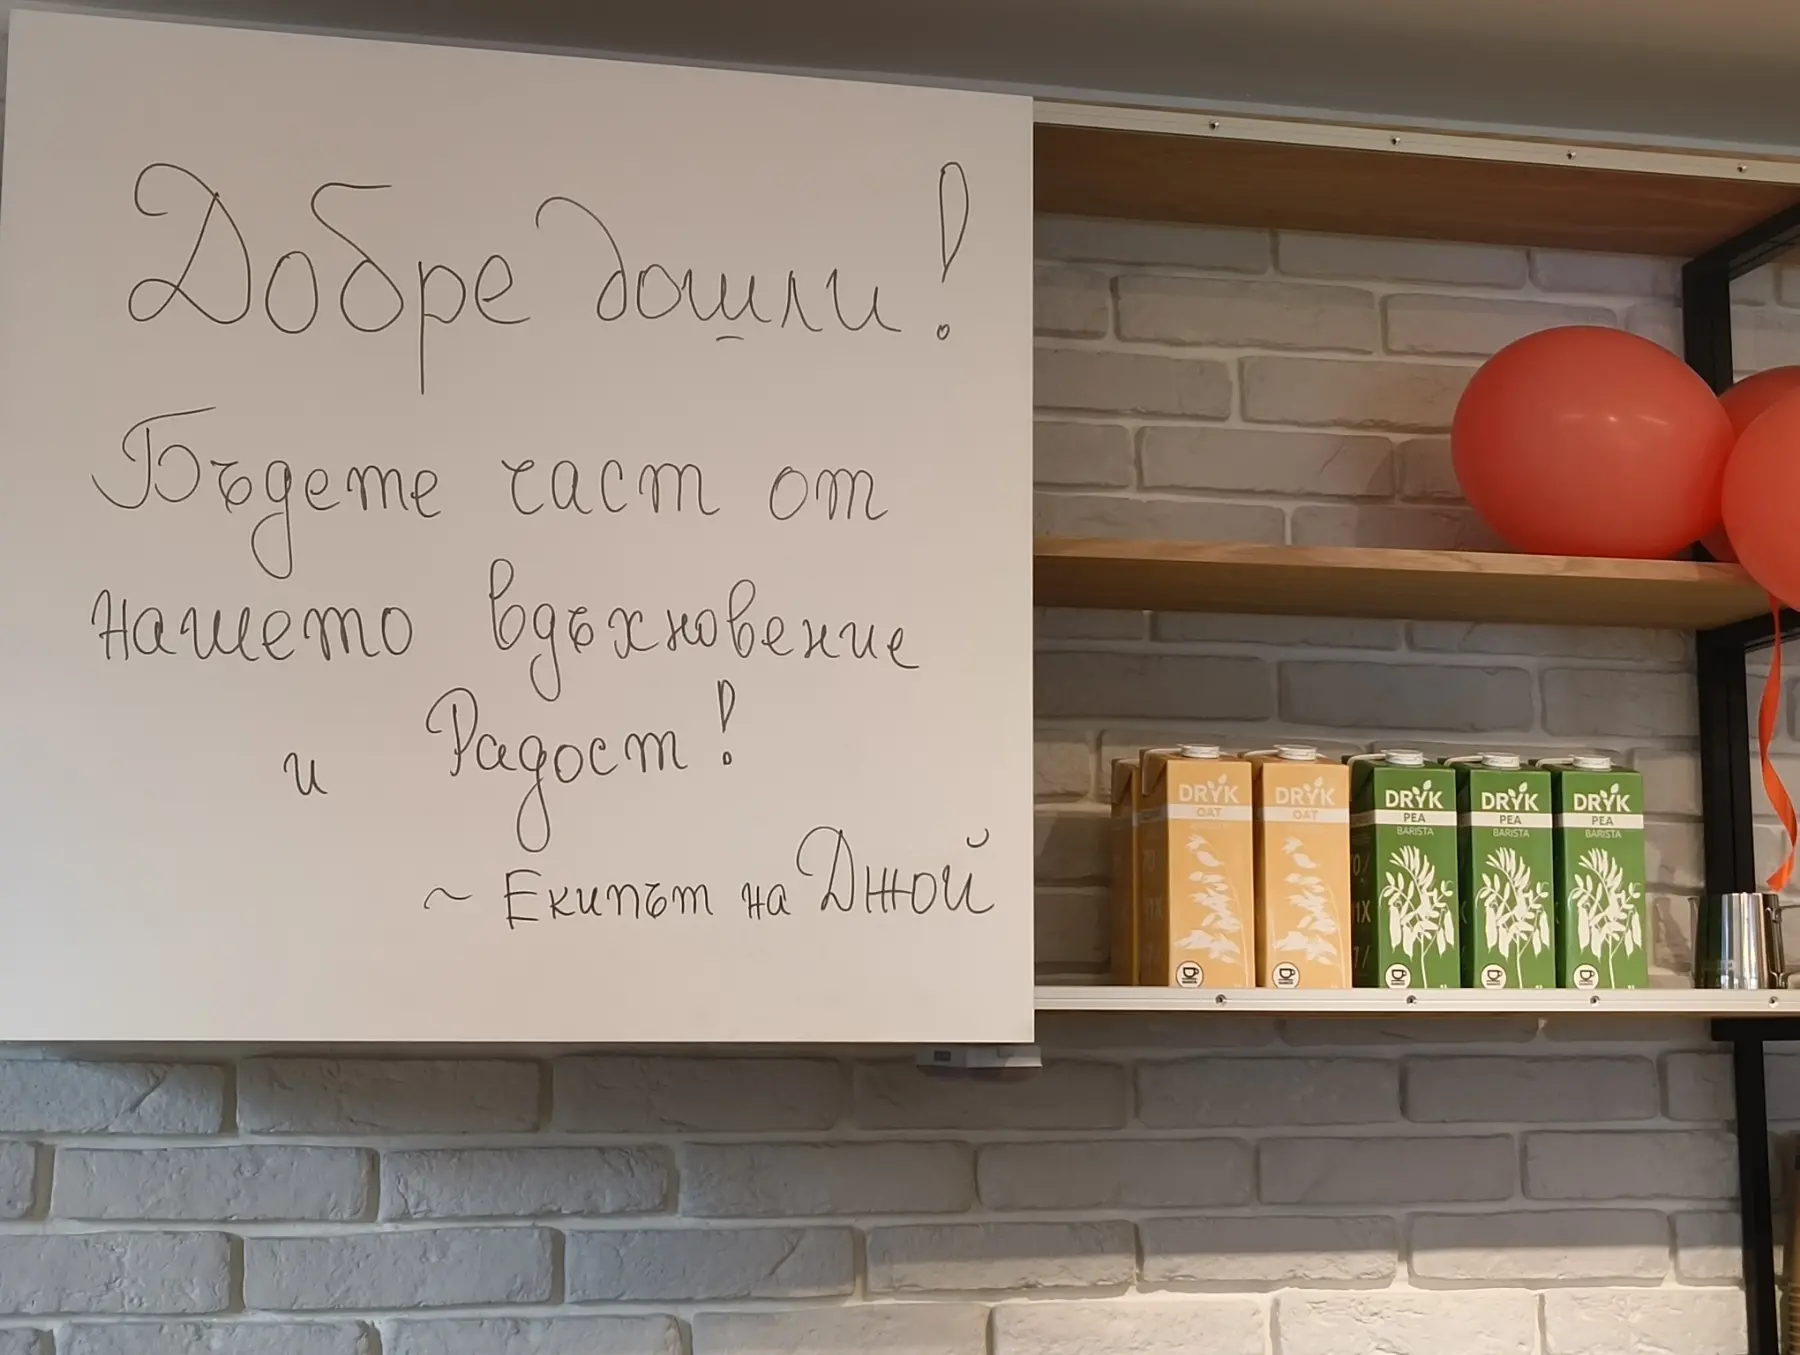 Добре дошли!
Бъдете част от
нашето вдъхновение
и Радост!
~ Екипът на Джой
DRYK
OAT
DRYK
OAT
DRYK
PEA
BARISTA
DRYK
PEA
BARISTA
DRYK
PEA
BARISTA